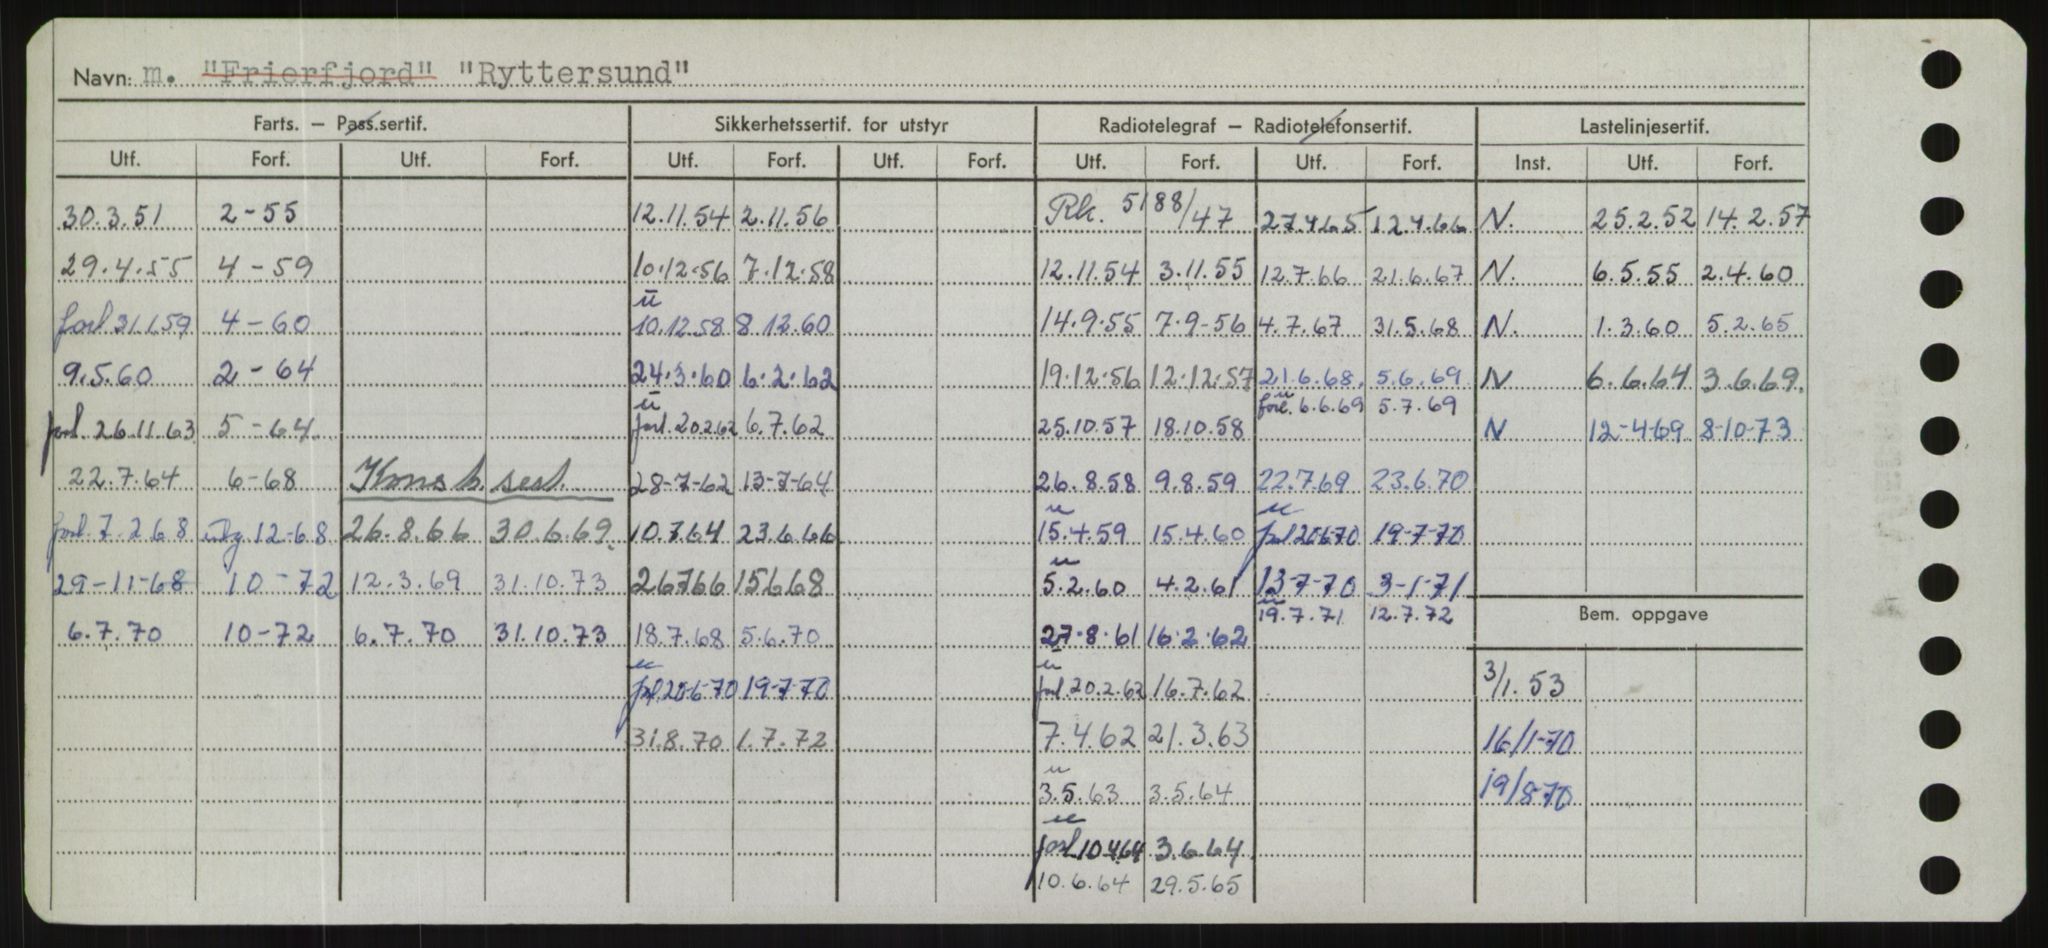 Navn: m. "Frierfjord" "Ryttersund"
Farts. – Pass.sertif. Sikkerhetssertif. for utstyr Radiotelegraf – Radiotelefonsertif. Lastelinjesertif.
Utf. Forf. Utf. Forf. Utf. Forf. Utf. Forf. Utf. Forf. Utf. Forf. Inst. Utf. Forf.
30.3.51 2-55 12.11.54 2.11.56 Rk. 5188/47 27.4.65 12.4.66 N. 25.2.52 14.2.57
29.4.55 4-59 10.12.56 7.12.58 12.11.54 3.11.55 12.7.66 21.6.67 N. 6.5.55 2.4.60
u
forl 31.1.59 4-60 10.12.58 8.12.60 14.9.55 7.9-56 4.7.67 31.5.68 N. 1.3.60 5.2.65
9.5.60 2-64 24.3.60 6.2.62 19.12.56 12.12.57 21.6.68. 5.6.69 N 6.6.64 3.6.69.
u u
forl. 6.6.69 5.7.69
forl. 26.11.63 5-64 forl. 20.2.62 6.7.62 25.10.57 18.10.58 N 12-4-69 8-10-73
22.7.64 6-68 sert. 28-7-62 13-7-64 26.8.58 9.8.59 22.7.69 23.6.70
u u
forl. 7-2 68 12-68 26.8.66 30.6.69. 10.7.64 23.6.66 15.4.59 15.4.60 forl 20-6-70 19-7-70
u
29-11-68 10-72 12.3.69 31.10.73 26766 15668 5.2.60 4.2.61 13-7-70 3-1-71
u
19.7.71 12.7.72
Bem. oppgave
6.7.70 10-72 6.7.70 31.10.73 18.7.68 5.6.70 27.8.61 16.2.62
u u
forl 20-6-70 19-7-70 forl. 20.2.62 16.7.62 3/1.53
31.8.70 1.7.72 7.4.62 21.3.63 16/1-70
u
3.5.63 3.5.64 19/8-70
u
forl 10.4.64 3.6.64
10.6.64 29.5.65